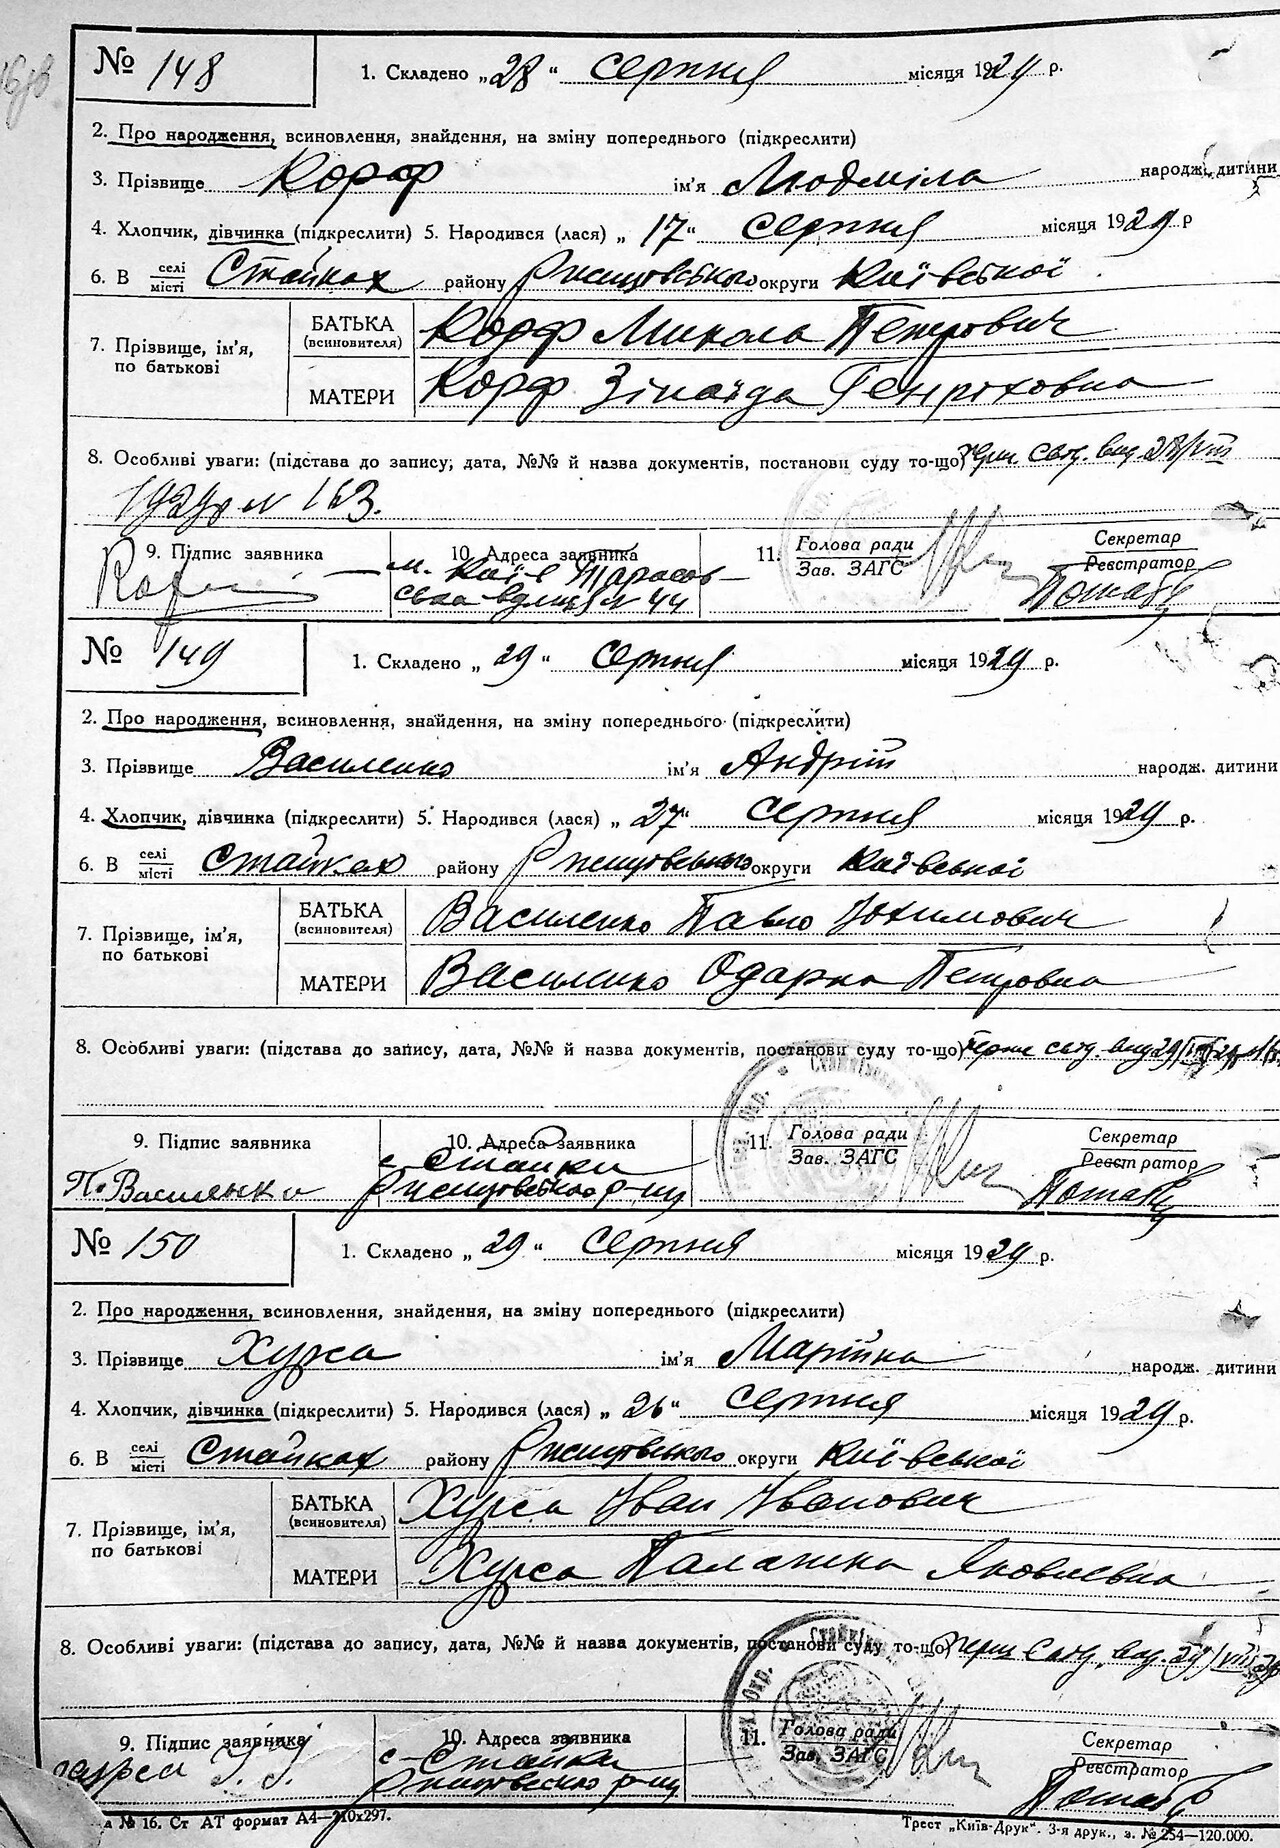 № 148 1. Складено „28“ серпня місяця 1929 р.
2. Про народження, всиновлення, знайдення, на зміну попереднього (підкреслити)
3. Прізвище Корф ім'я Людміла народж. дитини
4. Хлопчик, дівчинка (підкреслити) 5. Народився (лася) „17“ серпня місяця 1929 р
6. В селі місті Стайках району Ржищівського округи Київської
7. Прізвище, ім'я, по батькові
БАТЬКА (всиновителя) Корф Микола Петрович
МАТЕРИ Корф Зінаїда Генріховна
8. Особливі уваги: (підстава до запису, дата, №№ й назва документів, постанови суду то-що) 28/VIII
1929 р № 163.
9. Підпис заявника
10. Адреса заявника м. Київ Тарасов-
ська вулиця № 44
11. Голова ради
Зав. ЗАГС
Секретар
Реєстратор
№ 149 1. Складено „29“ серпня місяця 1929 р.
2. Про народження, всиновлення, знайдення, на зміну попереднього (підкреслити)
3. Прізвище Василенко ім'я Андрій народж. дитини
4. Хлопчик, дівчинка (підкреслити) 5. Народився (лася) „27“ серпня місяця 1929 р.
6. В селі місті Стайках району Ржищівського округи Київської
7. Прізвище, ім'я, по батькові
БАТЬКА (всиновителя) Василенко Павло Юхимович
МАТЕРИ Василенко Одарка Петровна
8. Особливі уваги: (підстава до запису, дата, №№ й назва документів, постанови суду то-що)
9. Підпис заявника
П. Василенко
10. Адреса заявника
с. Стайки
Ржищівського р-ну
11. Голова ради
Зав. ЗАГС
Секретар
Реєстратор
№ 150 1. Складено „29“ серпня місяця 1929 р.
2. Про народження, всиновлення, знайдення, на зміну попереднього (підкреслити)
3. Прізвище Хурса ім'я Марійка народж. дитини
4. Хлопчик, дівчинка (підкреслити) 5. Народився (лася) „26“ серпня місяця 1929 р.
6. В селі місті Стайках району Ржищівського округи Київської
7. Прізвище, ім'я, по батькові
БАТЬКА (всиновителя) Хурса Іван Іванович
МАТЕРИ Хурса Палажка Яковлевна
8. Особливі уваги: (підстава до запису, дата, №№ й назва документів, постанови суду то-що)
9. Підпис заявника
10. Адреса заявника
с. Стайки
Ржищівського р-ну
11. Голова ради
Зав. ЗАГС
Секретар
Реєстратор
№ 16. Ст АТ формат А4—210х297.
Трест „Київ-Друк“. 3-я друк., з. № 254—120.000.